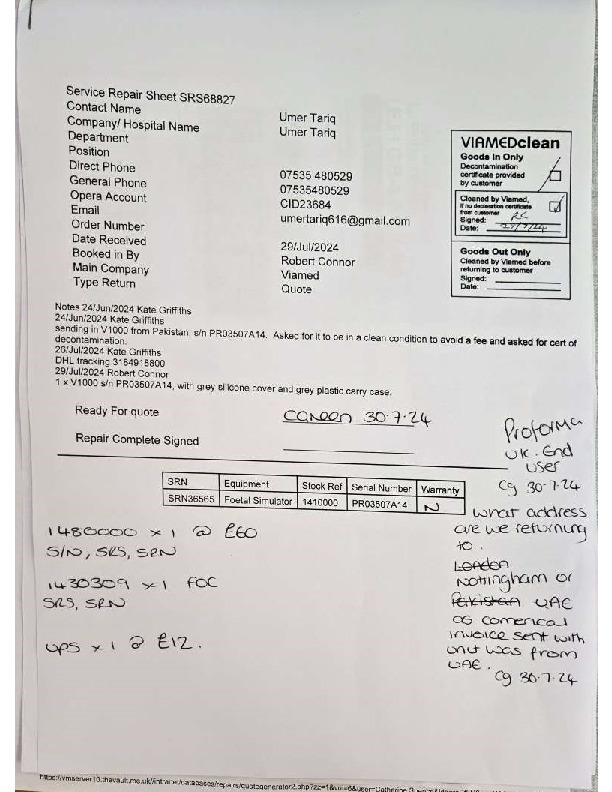 Service Repair Sheet SRS68827
Contact Name Umer Tariq
Company/ Hospital Name Umer Tariq
Department
Position
Direct Phone 07535 480529
General Phone 07535480529
Opera Account CID23684
Email umertariq616@gmail.com
Order Number
Date Received 29/Jul/2024
Booked in By Robert Connor
Main Company Viamed
Type Return Quote
VIAMEDclean
Goods In Only
Decontamination
certificate provided
by customer
Cleaned by Viamed,
if no decontam certificate
from customer
Signed:
Date:
Goods Out Only
Cleaned by Viamed before
returning to customer
Signed:
Date:
Notes 24/Jun/2024 Kate Griffiths
24/Jun/2024 Kate Griffiths
sending in V1000 from Pakistan, s/n PR03507A14. Asked for it to be in a clean condition to avoid a fee and asked for cert of
decontamination.
26/Jul/2024 Kate Griffiths
DHL tracking 3184915800
29/Jul/2024 Robert Connor
1 x V1000 s/n PR03507A14, with grey silicone cover and grey plastic carry case.
Ready For quote careen 30.7.24
Repair Complete Signed
Proforma
UK. End
User
Cg 30.7.24
SRN Equipment Stock Ref Serial Number Warranty
SRN36565 Foetal Simulator 1410000 PR03507A14 N
1480000 x 1 @ £60
S/N, SRS, SRN
1430309 x 1 FOC
SRS, SRN
UPS x 1 @ £12.
what address
are we returning
to.
London
Nottingham or
Pakistan UAE
as comerical
invoice sent with
unit was from
UAE.
Cg 30.7.24